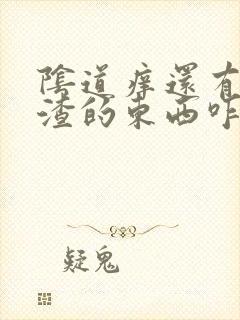 陰道痒還有
渣的東西咋
疑鬼